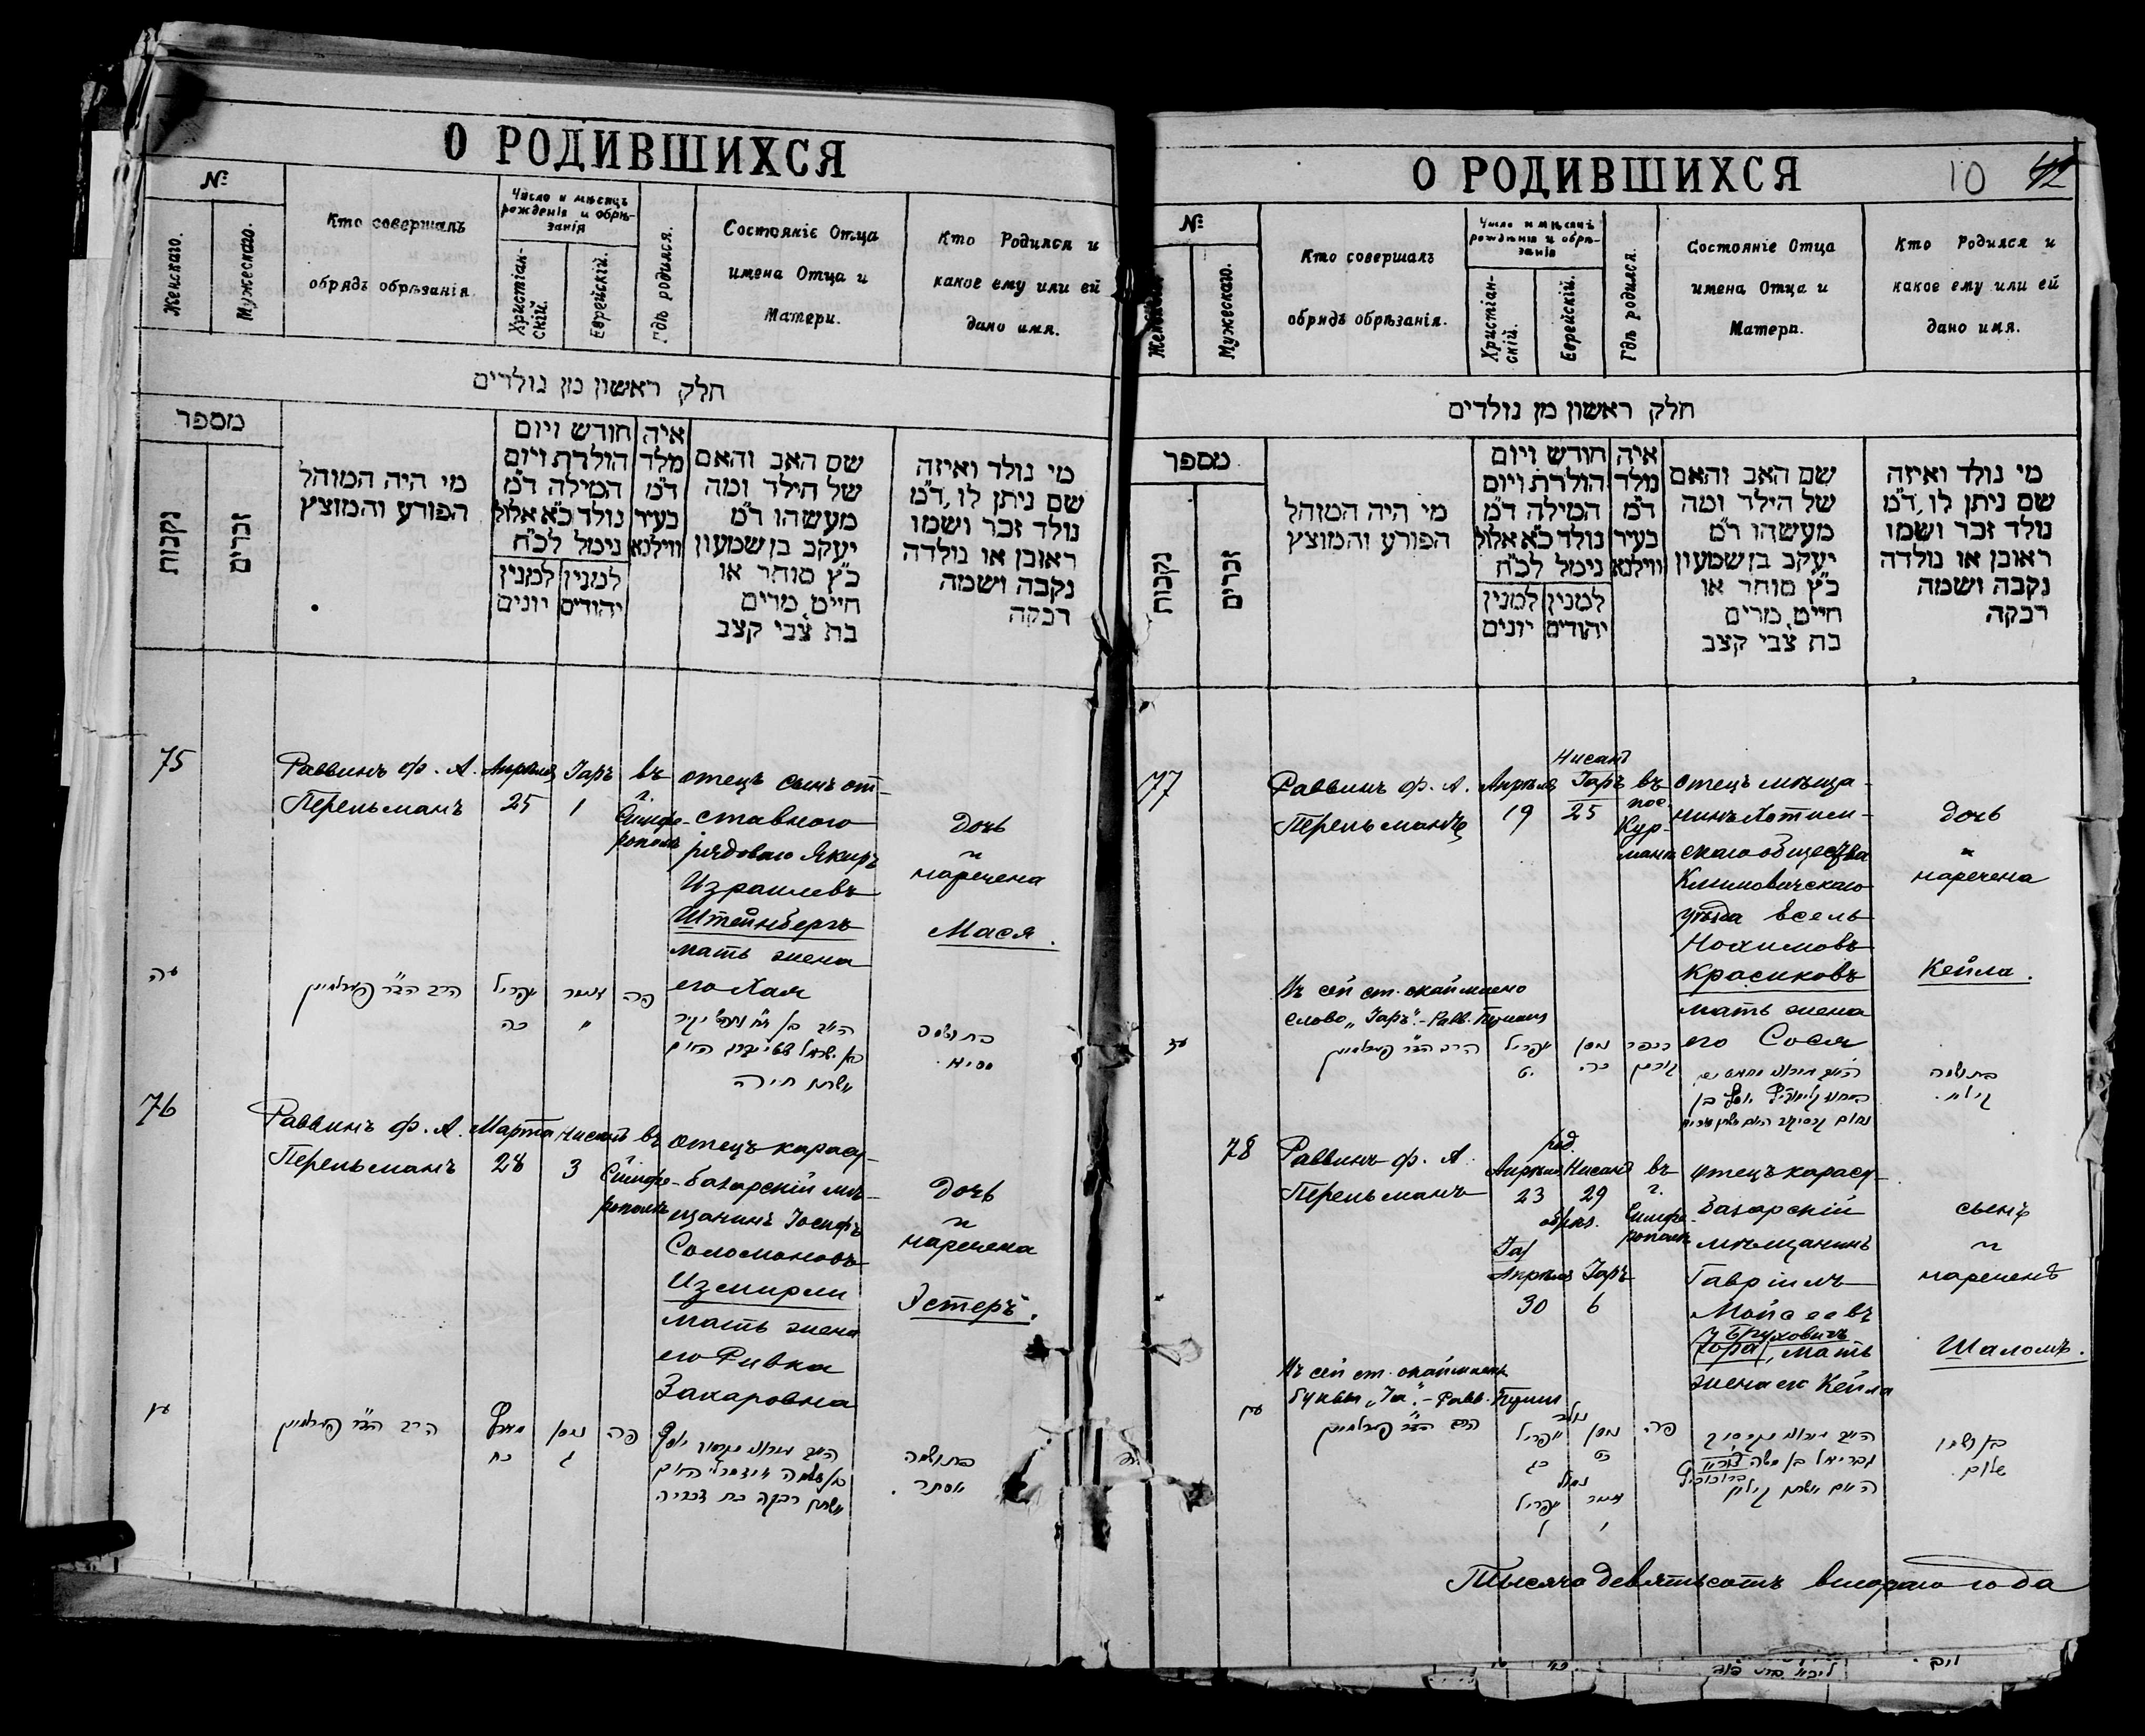 О РОДИВШИХСЯ
№
Женскаго.
Мужескаго.
Кто совершалъ
обрядъ обрѣзанія
Число и мѣсяцъ
рожденія и обрѣ-
занія
Христіан-
скій.
Еврейскій.
Гдѣ родился.
Состояніе Отца
имена Отца и
Матери.
Кто Родился и
какое ему или ей
дано имя.
חלק ראשון מן נולדים
מספר
נקבות
זכרים
מי היה המוהל
הפורע והמוצץ
חודש ויום
הולדת ויום
המילה ד״מ
נולד כ״א אלול
נימל לכ״ח
למנין
יהודים
למנין
יונים
איה
מלד
ד״מ
בעיר
ווילנא
שם האב והאם
של הילד ומה
מעשהו ד״מ
יעקב בן שמעון
כ״ץ סוחר או
חייט מרים
בת צבי קצב
מי נולד ואיזה
שם ניתן לו, ד״מ
נולד זכר ושמו
ראובן או נולדה
נקבה ושמה
רבקה
75
Раввинъ ф. А.
Перельманъ
Апрѣля
25
Іаръ
1
въ
г.
Симфе-
рополѣ
отецъ сынъ от-
ставного
рядового Якиръ
Израилевъ
Штейнбергъ
мать жена
его Хая
дочь
наречена
Мася.
עה
הרב הב״ר פערלמאן
אפריל
כה
פה
בת ושמה
מסיא.
76
Раввинъ ф. А.
Перельманъ
Марта
28
Нисанъ
3
въ
г.
Симфе-
рополѣ
отецъ карасу-
базарскій мѣ-
щанинъ Іосифъ
Соломоновъ
Измирли
мать жена
его Ривка
Захаровна
дочь
наречена
Эстеръ.
עו
הרב הב״ר פערלמאן
כח
ניסן
ג
פה
אשתו רבקה בת זכריה
בת ושמה
אסתר.
О РОДИВШИХСЯ
10
42
№
Женскаго.
Мужескаго.
Кто совершалъ
обрядъ обрѣзанія.
Число и мѣсяцъ
рожденія и обрѣ-
занія
Христіан-
скій.
Еврейскій.
Гдѣ родился.
Состояніе Отца
имена Отца и
Матери.
Кто Родился и
какое ему или ей
дано имя.
חלק ראשון מן נולדים
מספר
נקבות
זכרים
מי היה המוהל
הפורע והמוצץ
חודש ויום
הולדת ויום
המילה ד״מ
נולד כ״א אלול
נימל לכ״ח
למנין
יהודים
למנין
יונים
איה
מלד
ד״מ
בעיר
ווילנא
שם האב והאם
של הילד ומה
מעשהו ד״מ
יעקב בן שמעון
כ״ץ סוחר או
חייט, מרים
בת צבי קצב
מי נולד ואיזה
שם ניתן לו, ד״מ
נולד זכר ושמו
ראובן או נולדה
נקבה ושמה
רבקה
77
Раввинъ ф. А.
Перельманъ
Апрѣля
19
Нисанъ
Іаръ
25
въ
пос.
Кур-
манъ
отецъ мѣща-
нинъ Хотим-
скаго общества
Климовичскаго
уѣзда Іосель
Нохимовъ
Красиковъ
мать жена
его Сося
дочь
наречена
Кейла.
Въ сей ст. окаймлено
слово „Іаръ".-Равв.
עז
הרב הב״ר פערלמאן
אפריל
יט
ניסן
כה
בת ושמה
קילא.
78
Раввинъ ф. А.
Перельманъ
род.
Апрѣля
23
Нисанъ
29
обрѣз.
Іа
Апрѣля
30
Іаръ
6
въ
г.
Симфе-
рополѣ
отецъ карасу-
базарскій
мѣщанинъ
Гавріилъ
Мойсеевъ
Бруховичъ
мать
жена его Кейла
сынъ
нареченъ
Шаломъ.
Въ сей ст. окаймлены
буквы „Іа".-Равв.
עח
הרב הב״ר פערלמאן
נולד
אפריל
כג
ניסן
כט
נימול
אפריל
ל
אייר
ו
פה
גבריאל בן משה
בן ושמו
שלום.
Тысяча девятьсотъ второго года